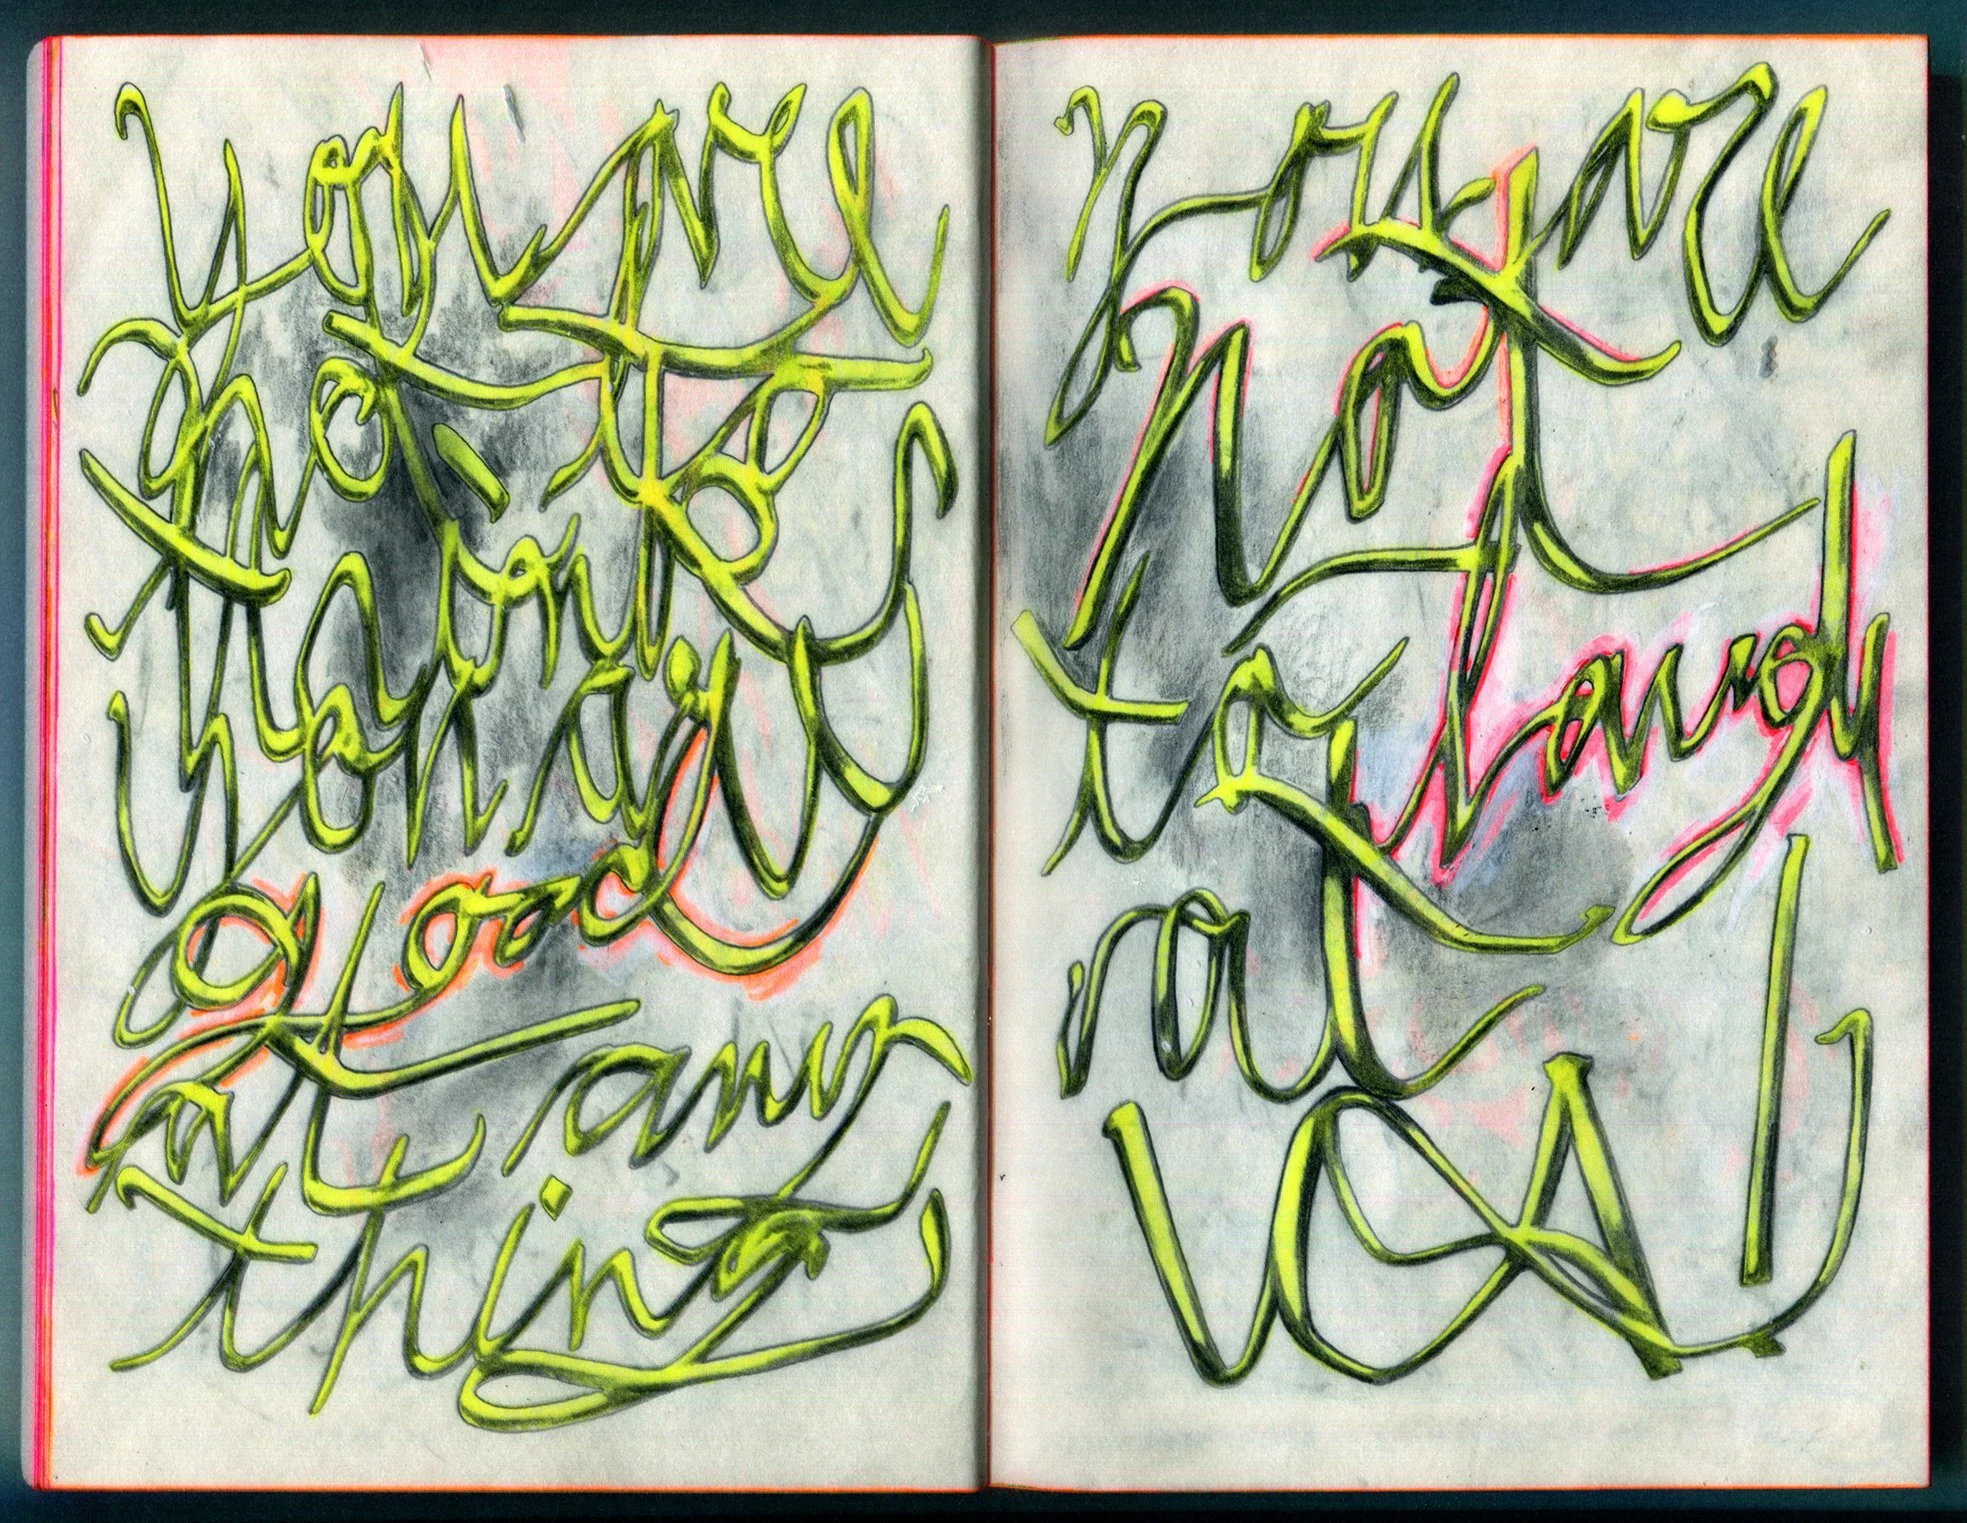 You are
not to
think
you are
good
at any
thing
you are
not
to laugh
at
US